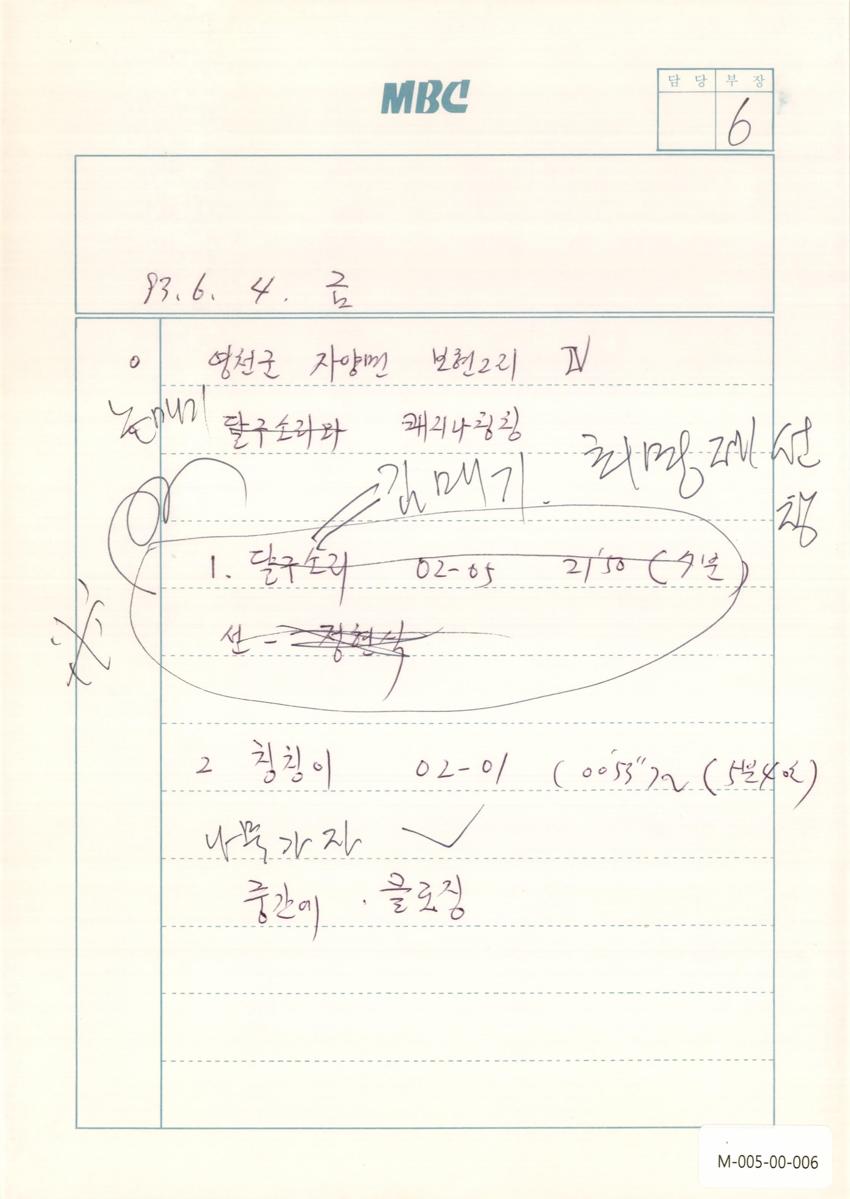 MBC
담 당 부 장
6
93. 6. 4. 금
o 영천군 자양면 보현2리 Ⅳ
논매기 달구소리와 쾌지나칭칭
김매기. 최명재 선창
1. 달구소리 02-05 21'50 (7분)
※
선 - 정현식
2 칭칭이 02-01 (00'53")~ (5분40초)
나무 가자 ✓
중간에 . 클로징
M-005-00-006